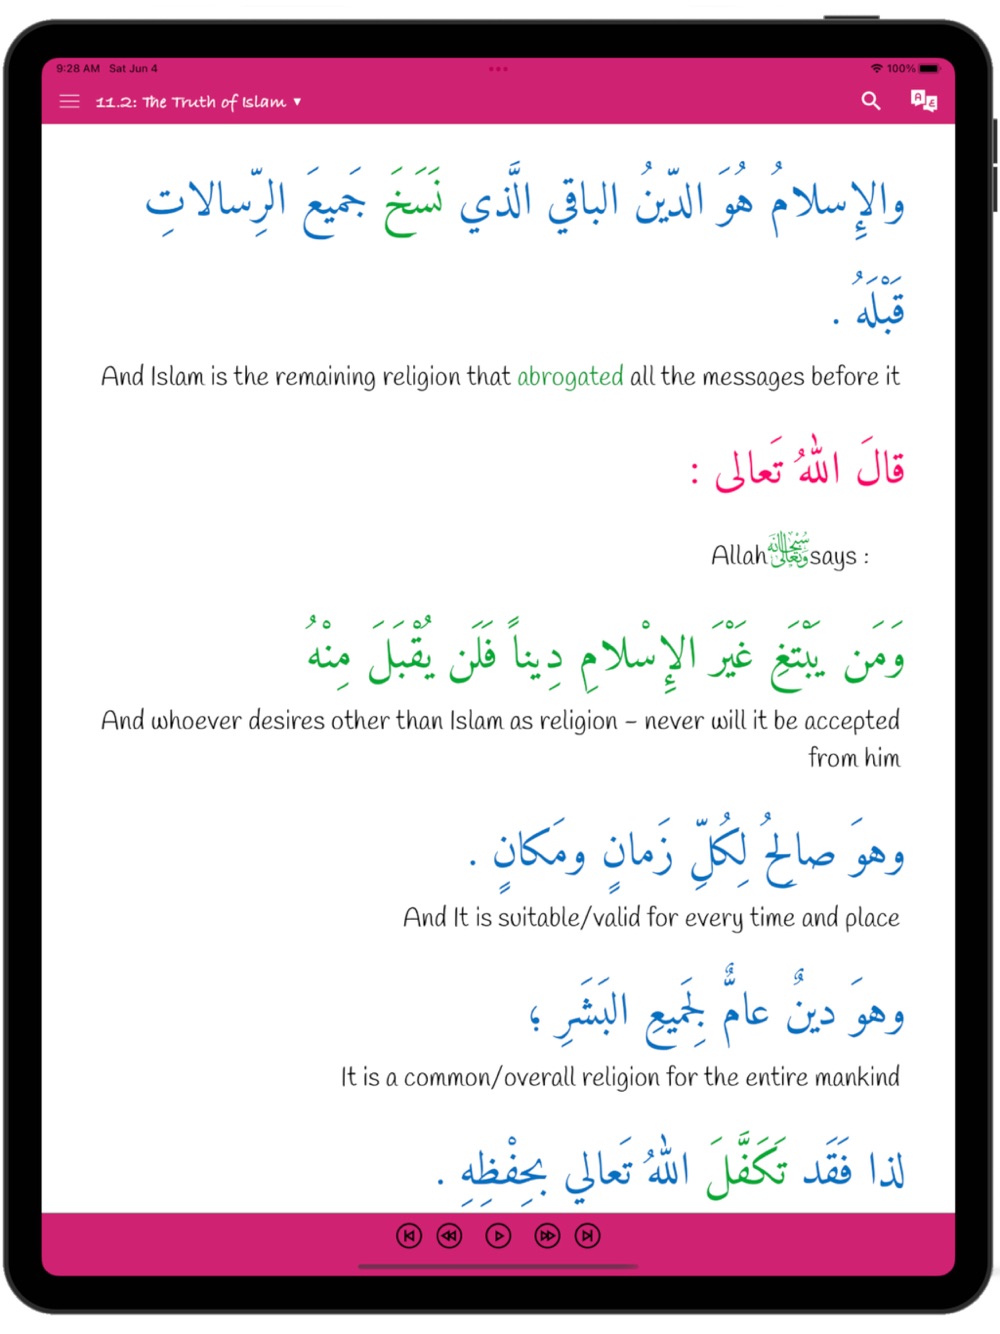 9:28 AM Sat Jun 4
100%
11.2: The Truth of Islam
والإِسلامُ هُوَ الدّينُ الباقي الَّذي نَسَخَ جَميعَ الرِّسالاتِ
قَبْلَهُ .
And Islam is the remaining religion that abrogated all the messages before it
قالَ اللهُ تَعالى :
Allah سُبْحَانَهُ وَتَعَالَىٰ says :
وَمَن يَبْتَغِ غَيْرَ الإِسْلامِ دِيناً فَلَن يُقْبَلَ مِنْهُ
And whoever desires other than Islam as religion – never will it be accepted
from him
وهوَ صالِحُ لِكُلِّ زَمانٍ ومَكانٍ .
And It is suitable/valid for every time and place
وهوَ دينٌ عامٌّ لِجَميعِ البَشَرِ ؛
It is a common/overall religion for the entire mankind
لذا فَقَد تَكَفَّلَ اللهُ تَعالي بِحِفْظِهِ .